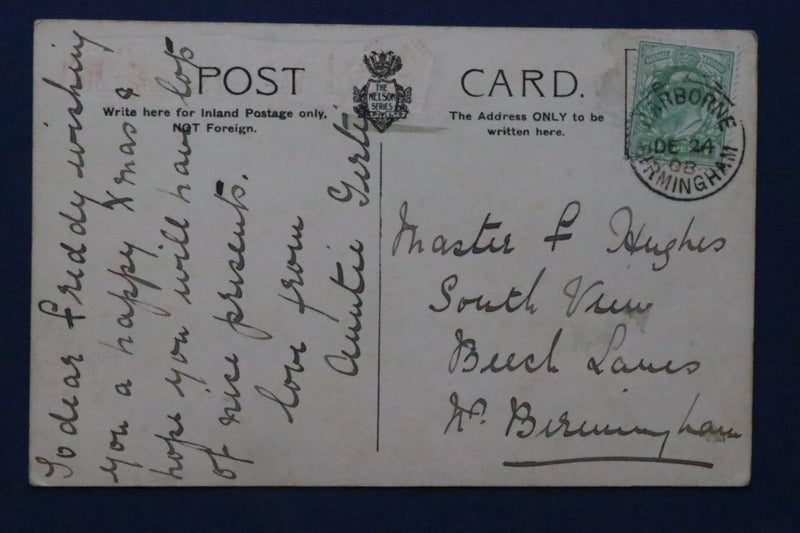 POST CARD.
THE
NELSON
SERIES
Write here for Inland Postage only,
NOT Foreign.
The Address ONLY to be
written here.
HARBORNE
DE 24
08
BIRMINGHAM
To dear Freddy wishing
you a happy Xmas &
hope you will have lots
of nice presents.
love from
Auntie Gerti
Master F Hughes
South View
Beech Lanes
Nr. Birmingham